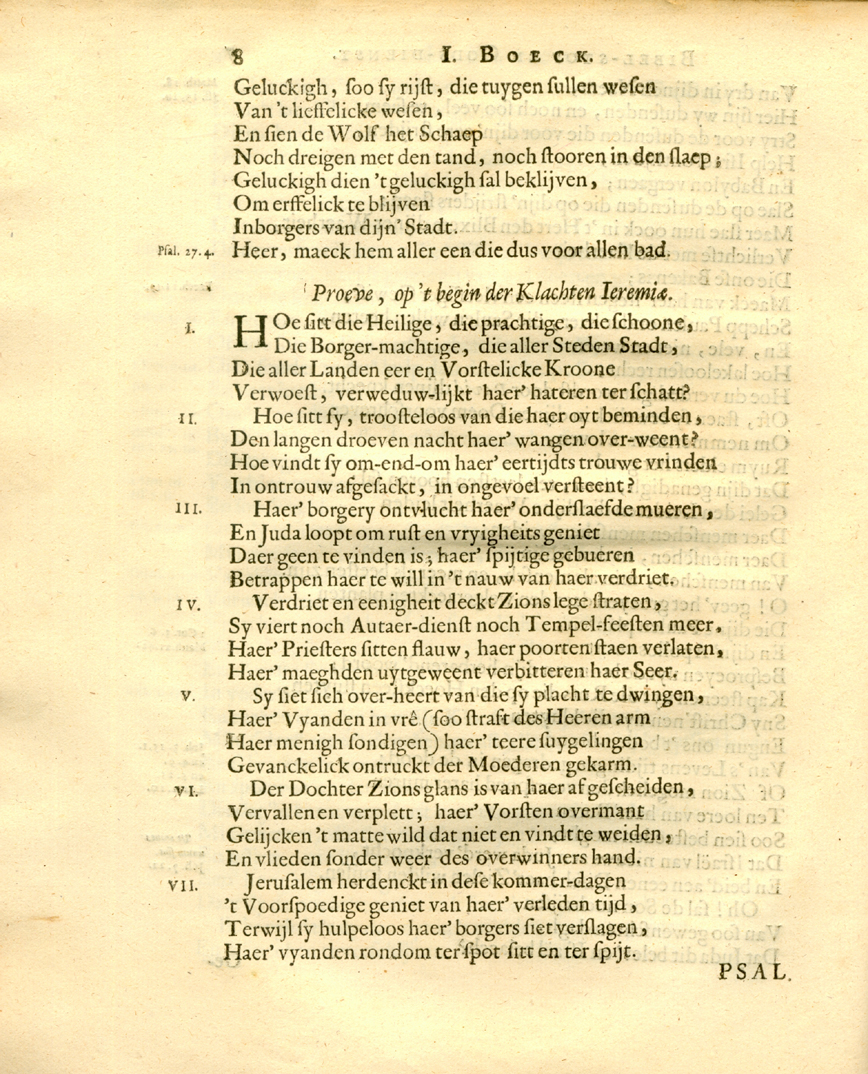 8 I. BOECK.
Geluckigh, soo sy rijst, die tuygen sullen wesen
Van 't lieffelicke wesen,
En sien de Wolf het Schaep
Noch dreigen met den tand, noch stooren in den slaep;
Geluckigh dien 't geluckigh sal beklijven,
Om erffelick te blijven
Inborgers van dijn' Stadt.
Psal. 27.4. Heer, maeck hem aller een die dus voor allen bad.
Proeve, op 't begin der Klachten Ieremiæ.
I. HOe sitt die Heilige, die prachtige, die schoone,
Die Borger-machtige, die aller Steden Stadt,
Die aller Landen eer en Vorstelicke Kroone
Verwoest, verweduw-lijkt haer' hateren ter schatt?
II. Hoe sitt sy, troosteloos van die haer oyt beminden,
Den langen droeven nacht haer' wangen over-weent?
Hoe vindt sy om-end-om haer' eertijdts trouwe vrinden
In ontrouw afgesackt, in ongevoel versteent?
III. Haer' borgery ontvlucht haer' onderslaefde mueren,
En Juda loopt om rust en vryigheits geniet
Daer geen te vinden is; haer' spijtige gebueren
Betrappen haer te will in 't nauw van haer verdriet.
IV. Verdriet en eenigheit deckt Zions lege straten,
Sy viert noch Autaer-dienst noch Tempel-feesten meer,
Haer' Priesters sitten flauw, haer poorten staen verlaten,
Haer' maeghden uytgeweent verbitteren haer Seer.
V. Sy siet sich over-heert van die sy placht te dwingen,
Haer' Vyanden in vrê (soo straft des Heeren arm
Haer menigh sondigen) haer' teere suygelingen
Gevanckelick ontruckt der Moederen gekarm.
VI. Der Dochter Zions glans is van haer af gescheiden,
Vervallen en verplett; haer' Vorsten overmant
Gelijcken 't matte wild dat niet en vindt te weiden,
En vlieden sonder weer des overwinners hand.
VII. Jerusalem herdenckt in dese kommer-dagen
't Voorspoedige geniet van haer' verleden tijd,
Terwijl sy hulpeloos haer' borgers siet verslagen,
Haer' vyanden rondom ter spot sitt en ter spijt.
PSAL.